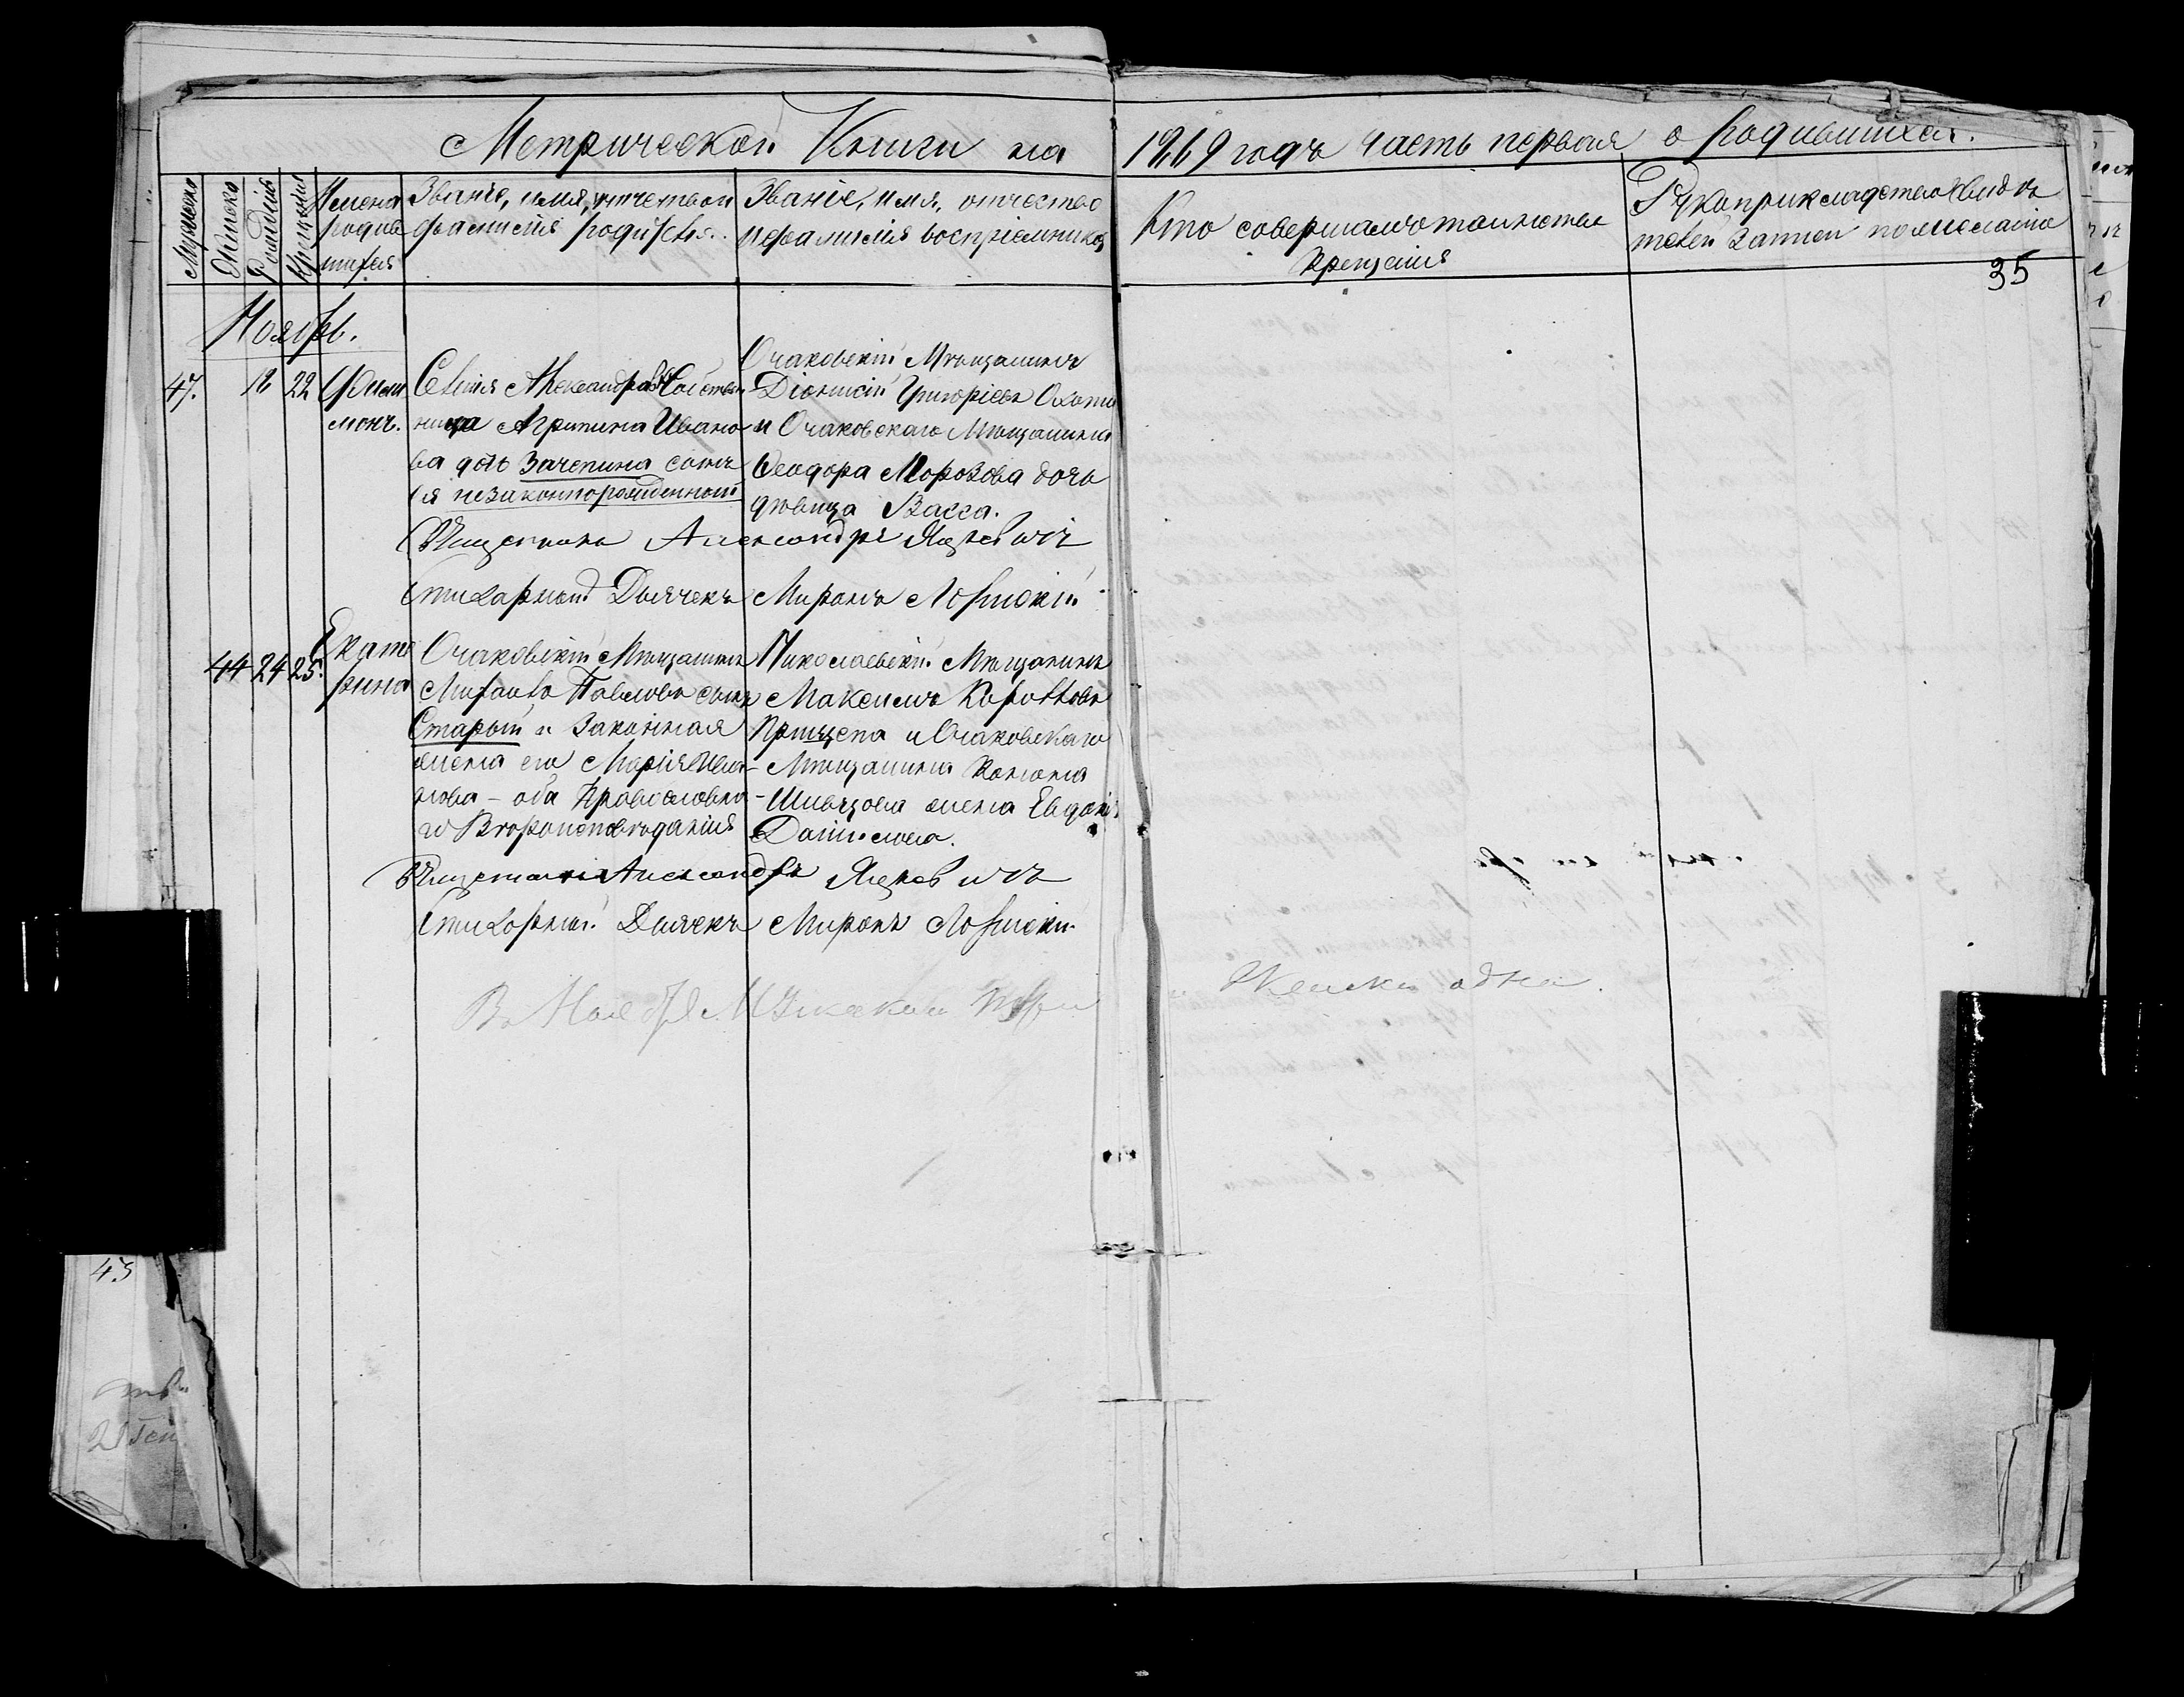 Метрической Книги на 1869 годъ часть первая о родившихся.
Мужеска
Женска
Рожденія
Крещенія
Имена
родив
шихся
Званіе, имя, отчество и
фамилія родителя.
Званіе, имя, отчество
и фамилія воспріемниковъ
Кто совершалъ таинство
Крещенія
Рукоприкладство свидѣ
телей записи по желанію
35
Ноябрь.
47. 18 22
Фили
монъ.
Александра
ница Агрипина Ивано
ва дочь Зачепина сынъ
ея незаконнорожденный
Очаковскій Мѣщанинъ
Діонисій Григорьевъ
и Очаковскаго Мѣщанина
Феодора Морозова дочь
дѣвица Васса.
Священникъ Александръ Яцкевичъ
Стихарный Дьячекъ Миронъ Лобинскій
44 24 25.
Екате
рина
Очаковскій Мѣщанинъ
Михаилъ Павловъ сынъ
Старый и законная
жена его Марія
лова – оба Православна
го Вѣроисповѣданія
Николаевскій Мѣщанинъ
Максимъ
Прищепа и Очаковскаго
Мѣщанина Конона
Шивцова жена Евдокія
Данилова.
Священникъ Александръ Яцкевичъ
Стихарный Дьячекъ Миронъ Лобинскій
Въ Ноябрѣ Мужеска три
Женска одна.
43